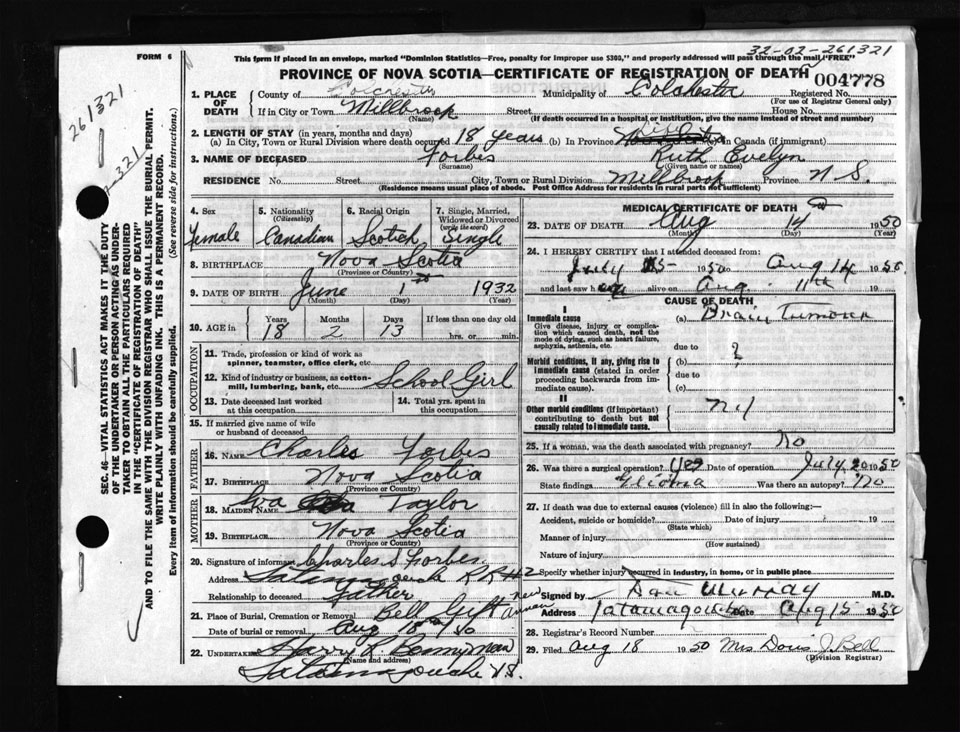 32-02-261321
FORM 6
This form if placed in an envelope, marked "Dominion Statistics—Free, penalty for improper use $300," and properly addressed will pass through the mail "FREE"
PROVINCE OF NOVA SCOTIA—CERTIFICATE OF REGISTRATION OF DEATH
004778
261321
321
SEC. 46—VITAL STATISTICS ACT MAKES IT THE DUTY
OF THE UNDERTAKER OR PERSON ACTING AS UNDER-
TAKER TO OBTAIN ALL THE PARTICULARS REQUIRED
IN THE "CERTIFICATE OF REGISTRATION OF DEATH"
AND TO FILE THE SAME WITH THE DIVISION REGISTRAR WHO SHALL ISSUE THE BURIAL PERMIT.
WRITE PLAINLY WITH UNFADING INK. THIS IS A PERMANENT RECORD.
Every item of information should be carefully supplied. (See reverse side for instructions.)
1. PLACE OF DEATH County of Colchester Municipality of Colchester Registered No.
(For use of Registrar General only)
If in City or Town Millbrook Street House No.
(Name) (If death occurred in a hospital or institution, give the name instead of street and number)
2. LENGTH OF STAY (in years, months and days)
(a) In City, Town or Rural Division where death occurred 18 years (b) In Province Life (c) in Canada (if immigrant)
3. NAME OF DECEASED Forbes Ruth Evelyn
(Surname) (Given name or names)
RESIDENCE No. Street City, Town or Rural Division Millbrook Province N S.
(Residence means usual place of abode. Post Office Address for residents in rural parts not sufficient)
4. Sex Female
5. Nationality (Citizenship) Canadian
6. Racial Origin Scotch
7. Single, Married, Widowed or Divorced (write the word) Single
8. BIRTHPLACE Nova Scotia
(Province or Country)
9. DATE OF BIRTH June 1st 1932
(Month) (Year)
10. AGE in Years 18 Months 2 Days 13 If less than one day old hrs. or min.
OCCUPATION
11. Trade, profession or kind of work as spinner, teamster, office clerk, etc.
12. Kind of industry or business, as cotton-mill, lumbering, bank, etc. School Girl
13. Date deceased last worked at this occupation
14. Total yrs. spent in this occupation
15. If married give name of wife or husband of deceased
FATHER
16. NAME Charles Forbes
17. BIRTHPLACE Nova Scotia
(Province or Country)
MOTHER
18. MAIDEN NAME Iva Taylor
19. BIRTHPLACE Nova Scotia
(Province or Country)
20. Signature of informant Charles S Forbes
Address Tatamagouche RR#2
Relationship to deceased Father
21. Place of Burial, Cremation or Removal Bell Gift new Annan
Date of burial or removal Aug 18 50
22. UNDERTAKER Harry R Bonnyman
(Name and address)
Tatamagouche N.S.
MEDICAL CERTIFICATE OF DEATH
23. DATE OF DEATH Aug 14 1950
(Month) (Day) (Year)
24. I HEREBY CERTIFY that I attended deceased from:
July 15 1950 to Aug 14 1950
and last saw h alive on Aug. 11th 19
CAUSE OF DEATH
I
Immediate cause
Give disease, injury or complication which caused death, not the mode of dying, such as heart failure, asphyxia, asthenia, etc.
(a) Brain Tumour
due to
Morbid conditions, if any, giving rise to immediate cause (stated in order proceeding backwards from immediate cause).
(b) ?
due to
(c)
II
Other morbid conditions (if important) contributing to death but not causally related to immediate cause.
Nil
25. If a woman, was the death associated with pregnancy? No
26. Was there a surgical operation? Yes Date of operation July 20 1950
State findings Glioma Was there an autopsy? No
27. If death was due to external causes (violence) fill in also the following:—
Accident, suicide or homicide? Date of injury 19
(State which)
Manner of injury
(How sustained)
Nature of injury
Specify whether injury occurred in industry, in home, or in public place
Signed by Dan Murray M.D.
Address Tatamagouche Date Aug 15 1950
28. Registrar's Record Number
29. Filed Aug 18 1950 Mrs Doris J. Bell
(Division Registrar)